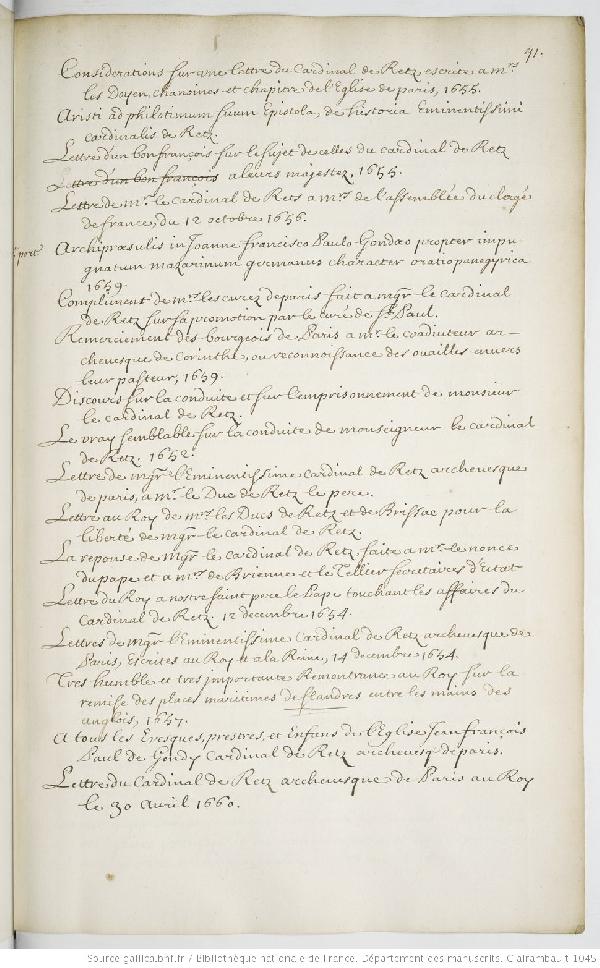 91.
Considerations sur une lettre du Cardinal de Retz escrite a mrs
les Doyen, chanoines et chapitre de l'Eglise de paris, 1655.
Aristi ad philotimum suum Epistola, de historia Eminentissimi
cardinalis de Retz.
Lettre d'un bon françois sur le sujet de celles du cardinal de Retz
Lettre d'un bon françois a leurs majestez, 1655.
Lettre de mr. le Cardinal de Rets a mrs de l'assemblée du clergé
de france, du 12 octobre 1656.
port
Archipræsulis in Joanne francisco Paulo Gondæo propter impu-
gnatum mazarinum germanus character oratio panegyrica
1659.
Compliment de mrs les curez de paris fait a mgr. le cardinal
de Retz sur sa promotion par le curé de St. Paul.
Remerciement des bourgeois de Paris a mr. le coadiuteur ar-
chevesque de Corinthe, ou reconnoissance des ouailles envers
leur pasteur, 1659.
Discours sur la conduite et sur l'emprisonnement de monsieur
le cardinal de Retz.
Le vray semblable sur la conduite de monseigneur le cardinal
de Retz. 1652.
Lettre de mgr. l'Eminentissime cardinal de Retz archevesque
de paris, a mr. le Duc de Retz le pere.
Lettre au Roy de mrs les Ducs de Retz et de Brissac pour la
liberté de mgr. le cardinal de Retz.
La reponse de mgr. le Cardinal de Retz faite a mr. le nonce
du pape et a mrs de Brienne et le Tellier secretaires d'Estat
Lettre du Roy a nostre saint pere le Pape touchant les affaires du
Cardinal de Retz. 12 decembre 1654.
Lettres de mgr. l'Eminentissime Cardinal de Retz archevesque de
Paris, Escrites au Roy et a la Reine, 14 decembre 1654.
Tres humble et tres importante Remontrance au Roy sur la
remise des places maritimes de flandres entre les mains des
anglois, 1657.
A tous les Evesques, prestres, et Enfans de l'Eglise Jean françois
Paul de Gondy Cardinal de Retz archevesq. de paris.
Lettre du Cardinal de Retz archevesque de Paris au Roy
le 30 Avril 1660.
Source gallica.bnf.fr / Bibliothèque nationale de France. Département des manuscrits. Clairambault 1045